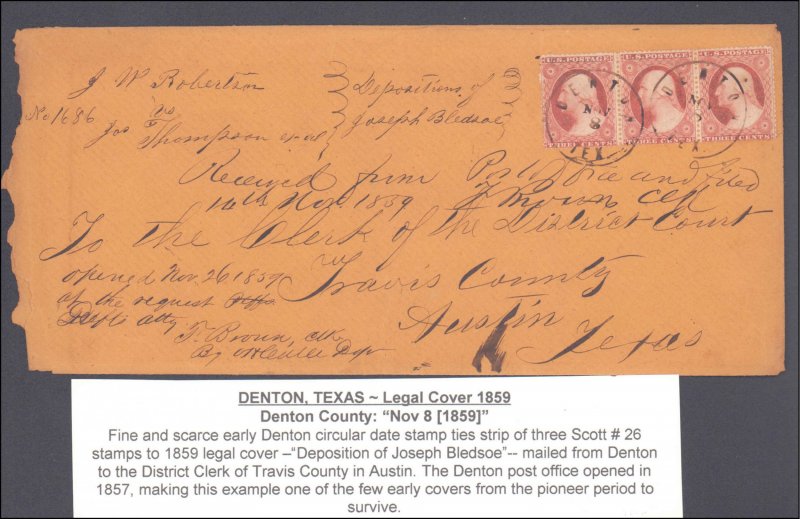 J W Robertson
vs
No 1686
Jos Thompson et al
Depositions of
Joseph Bledsoe
U.S. POSTAGE U.S. POSTAGE U.S. POSTAGE
THREE CENTS THREE CENTS THREE CENTS
DENTON
NOV
8
TEX
DENTON
NOV
TEX
Received from Post Office and filed
14th Nov. 1859 F Brown Clk
To the Clerk of the District Court
Travis County
Austin
Texas
opened Nov. 26 1859
at the request Plffs
Defts atty
F. Brown, Clk
By Dept
DENTON, TEXAS ~ Legal Cover 1859
Denton County: “Nov 8 [1859]”
Fine and scarce early Denton circular date stamp ties strip of three Scott # 26
stamps to 1859 legal cover –“Deposition of Joseph Bledsoe”-- mailed from Denton
to the District Clerk of Travis County in Austin. The Denton post office opened in
1857, making this example one of the few early covers from the pioneer period to
survive.